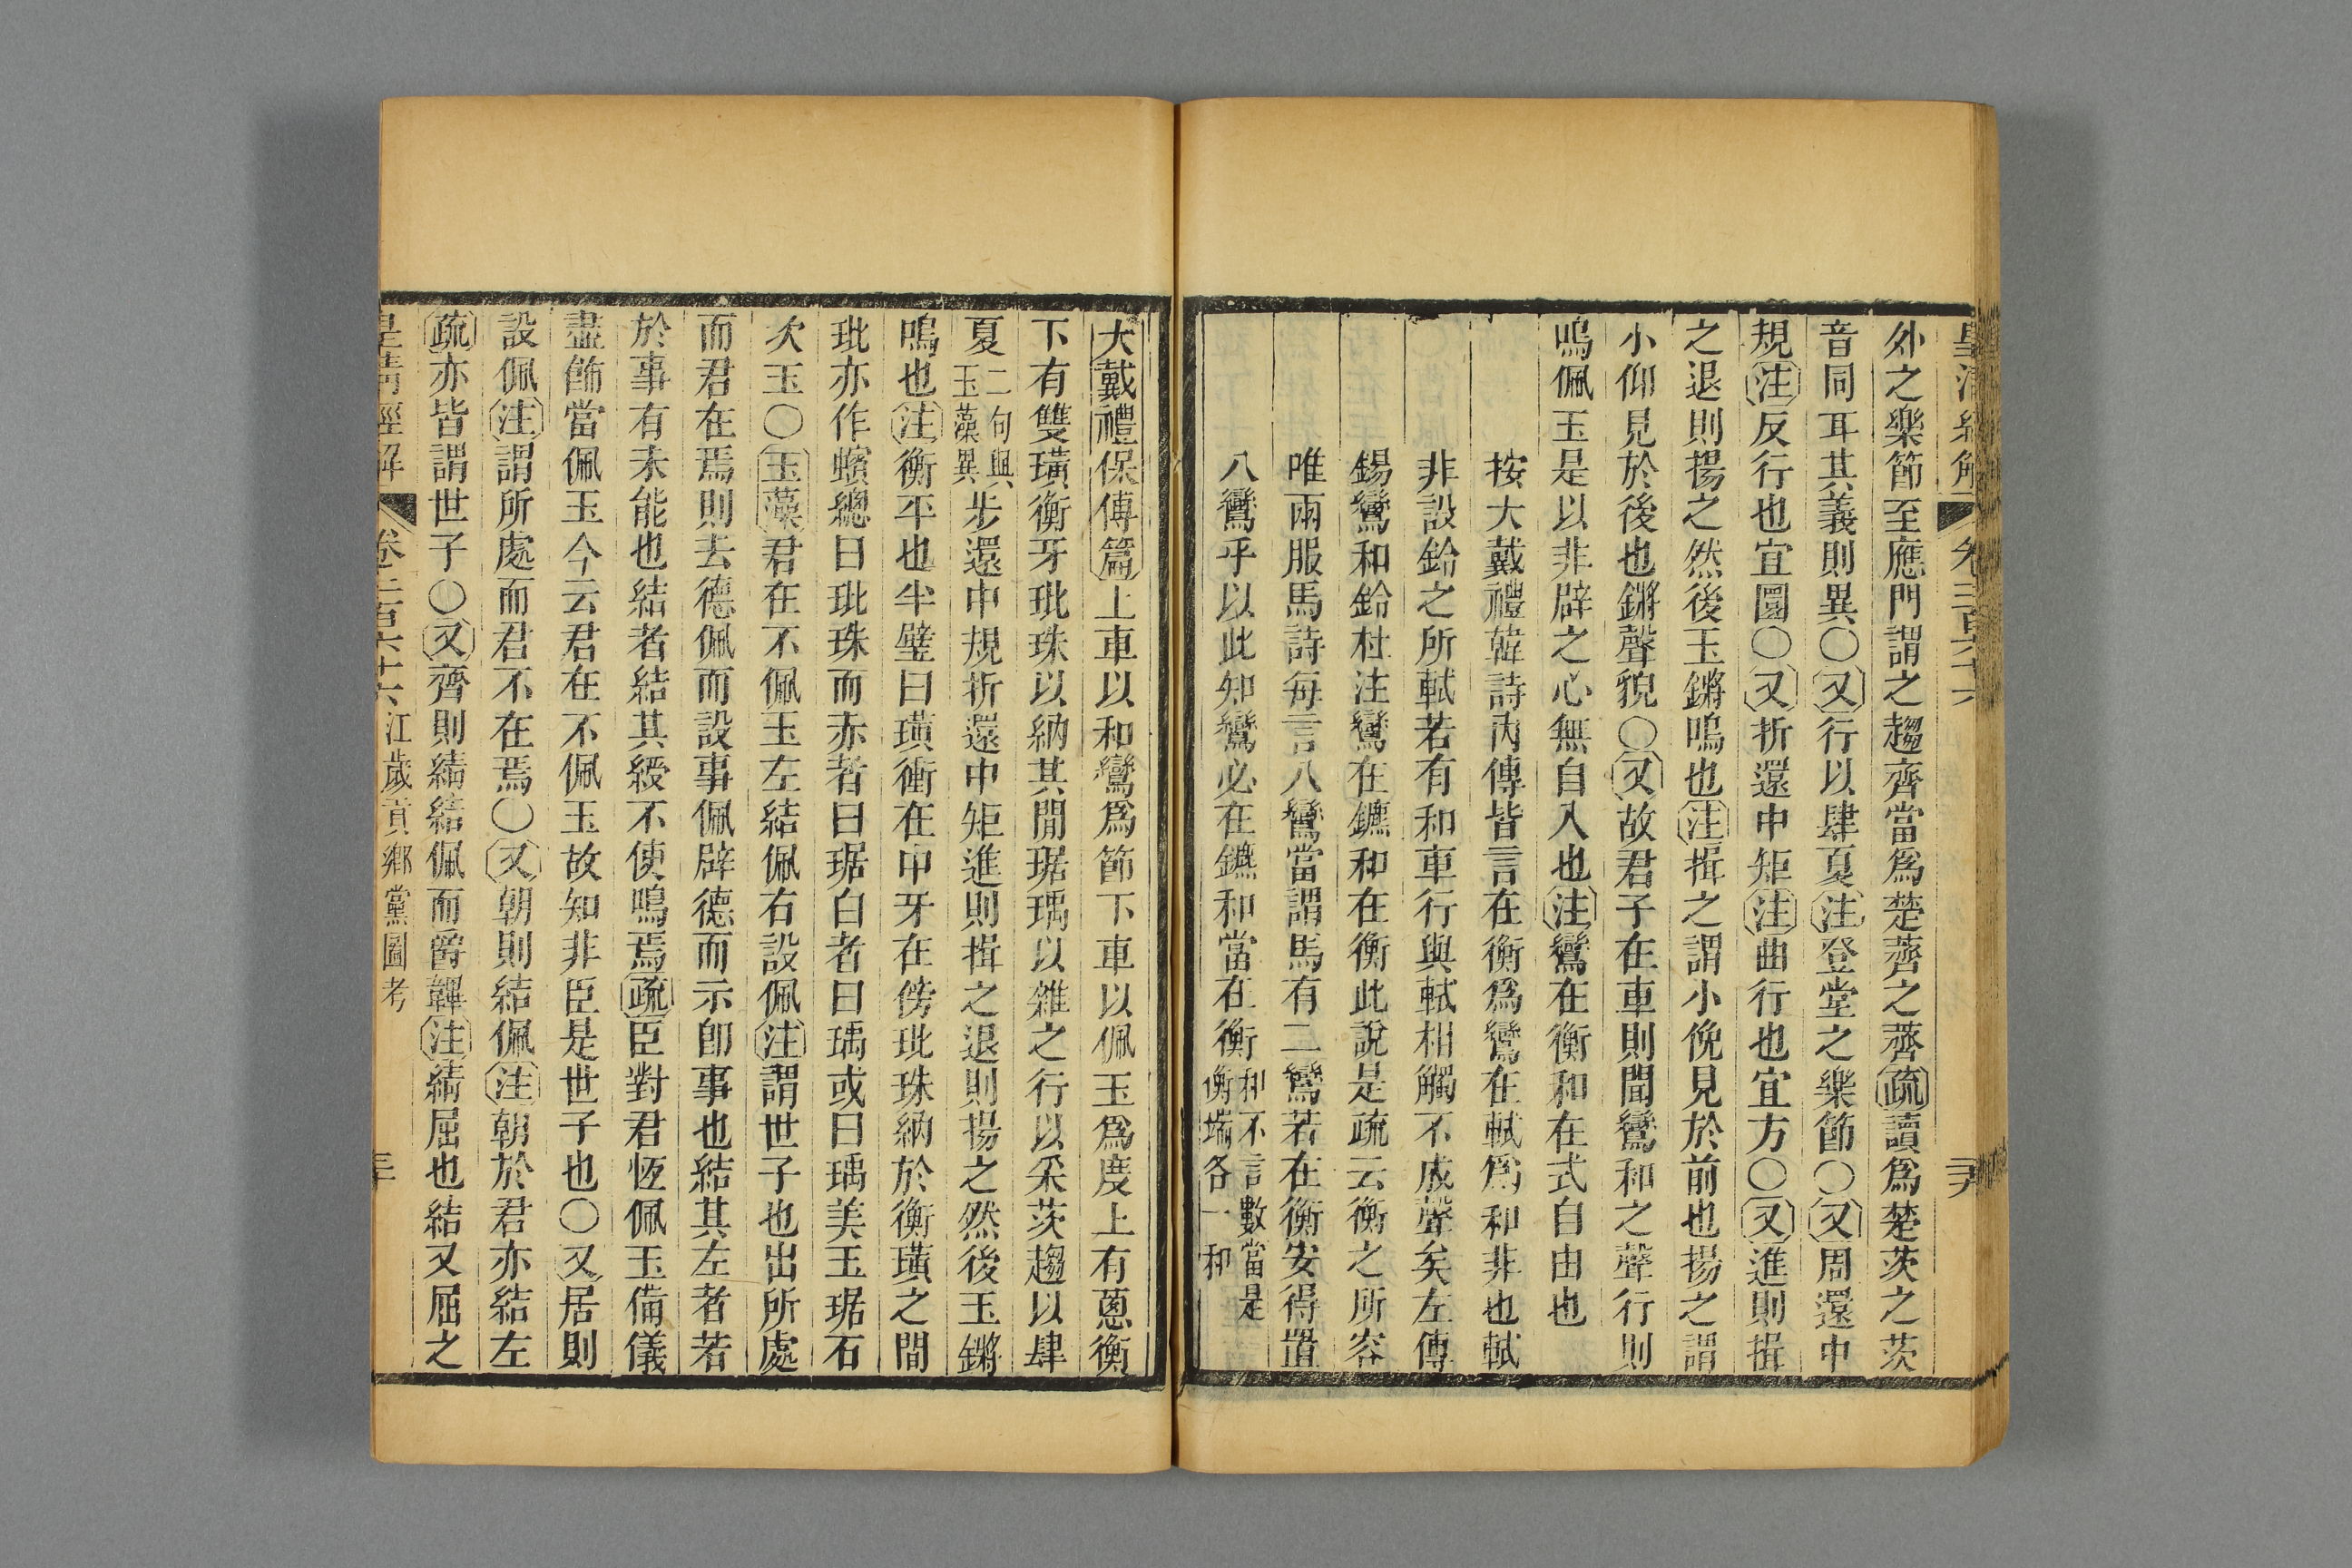 外之樂節至應門謂之趨齊當爲楚薺之薺疏讀爲楚茨之茨
音同耳其義則異○又行以肆夏注登堂之樂節○又周還中
規注反行也宜圜○又折還中矩注曲行也宜方○又進則揖
之退則揚之然後玉鏘鳴也注揖之謂小俛見於前也揚之謂
小仰見於後也鏘聲貌○又故君子在車則聞鸞和之聲行則
鳴佩玉是以非辟之心無自入也注鸞在衡和在式自由也
按大戴禮韓詩內傳皆言在衡爲鸞在軾爲和非也軾
非設鈴之所軾若有和車行與軾相觸不成聲矣左傳
錫鸞和鈴杜注鸞在鑣和在衡此說是疏云衡之所容
唯兩服馬詩每言八鸞當謂馬有二鸞若在衡安得置
八鸞乎以此知鸞必在鑣和當在衡和不言數當是衡端各一和
大戴禮保傅篇上車以和鸞爲節下車以佩玉爲度上有蔥衡
下有雙璜衝牙玭珠以納其間琚瑀以雜之行以采茨趨以肆
夏二句與玉藻異步還中規折還中矩進則揖之退則揚之然後玉鏘
鳴也注衡平也半璧曰璜衝在中牙在傍玭珠納於衡璜之間
玭亦作蠙總曰玭珠而赤者曰琚白者曰瑀或曰瑀美玉琚石
次玉○玉藻君在不佩玉左結佩右設佩注謂世子也出所處
而君在焉則去德佩而設事佩辟德而示卽事也結其左者若
於事有未能也結者結其綬不使鳴焉疏臣對君恆佩玉備儀
盡飾當佩玉今云君在不佩玉故知非臣是世子也○又居則
設佩注謂所處而君不在焉○又朝則結佩注朝於君亦結左
疏亦皆謂世子○又齊則綪結佩而爵韠注綪屈也結又屈之
皇清經解 卷二百六十六 江歲貢鄉黨圖考